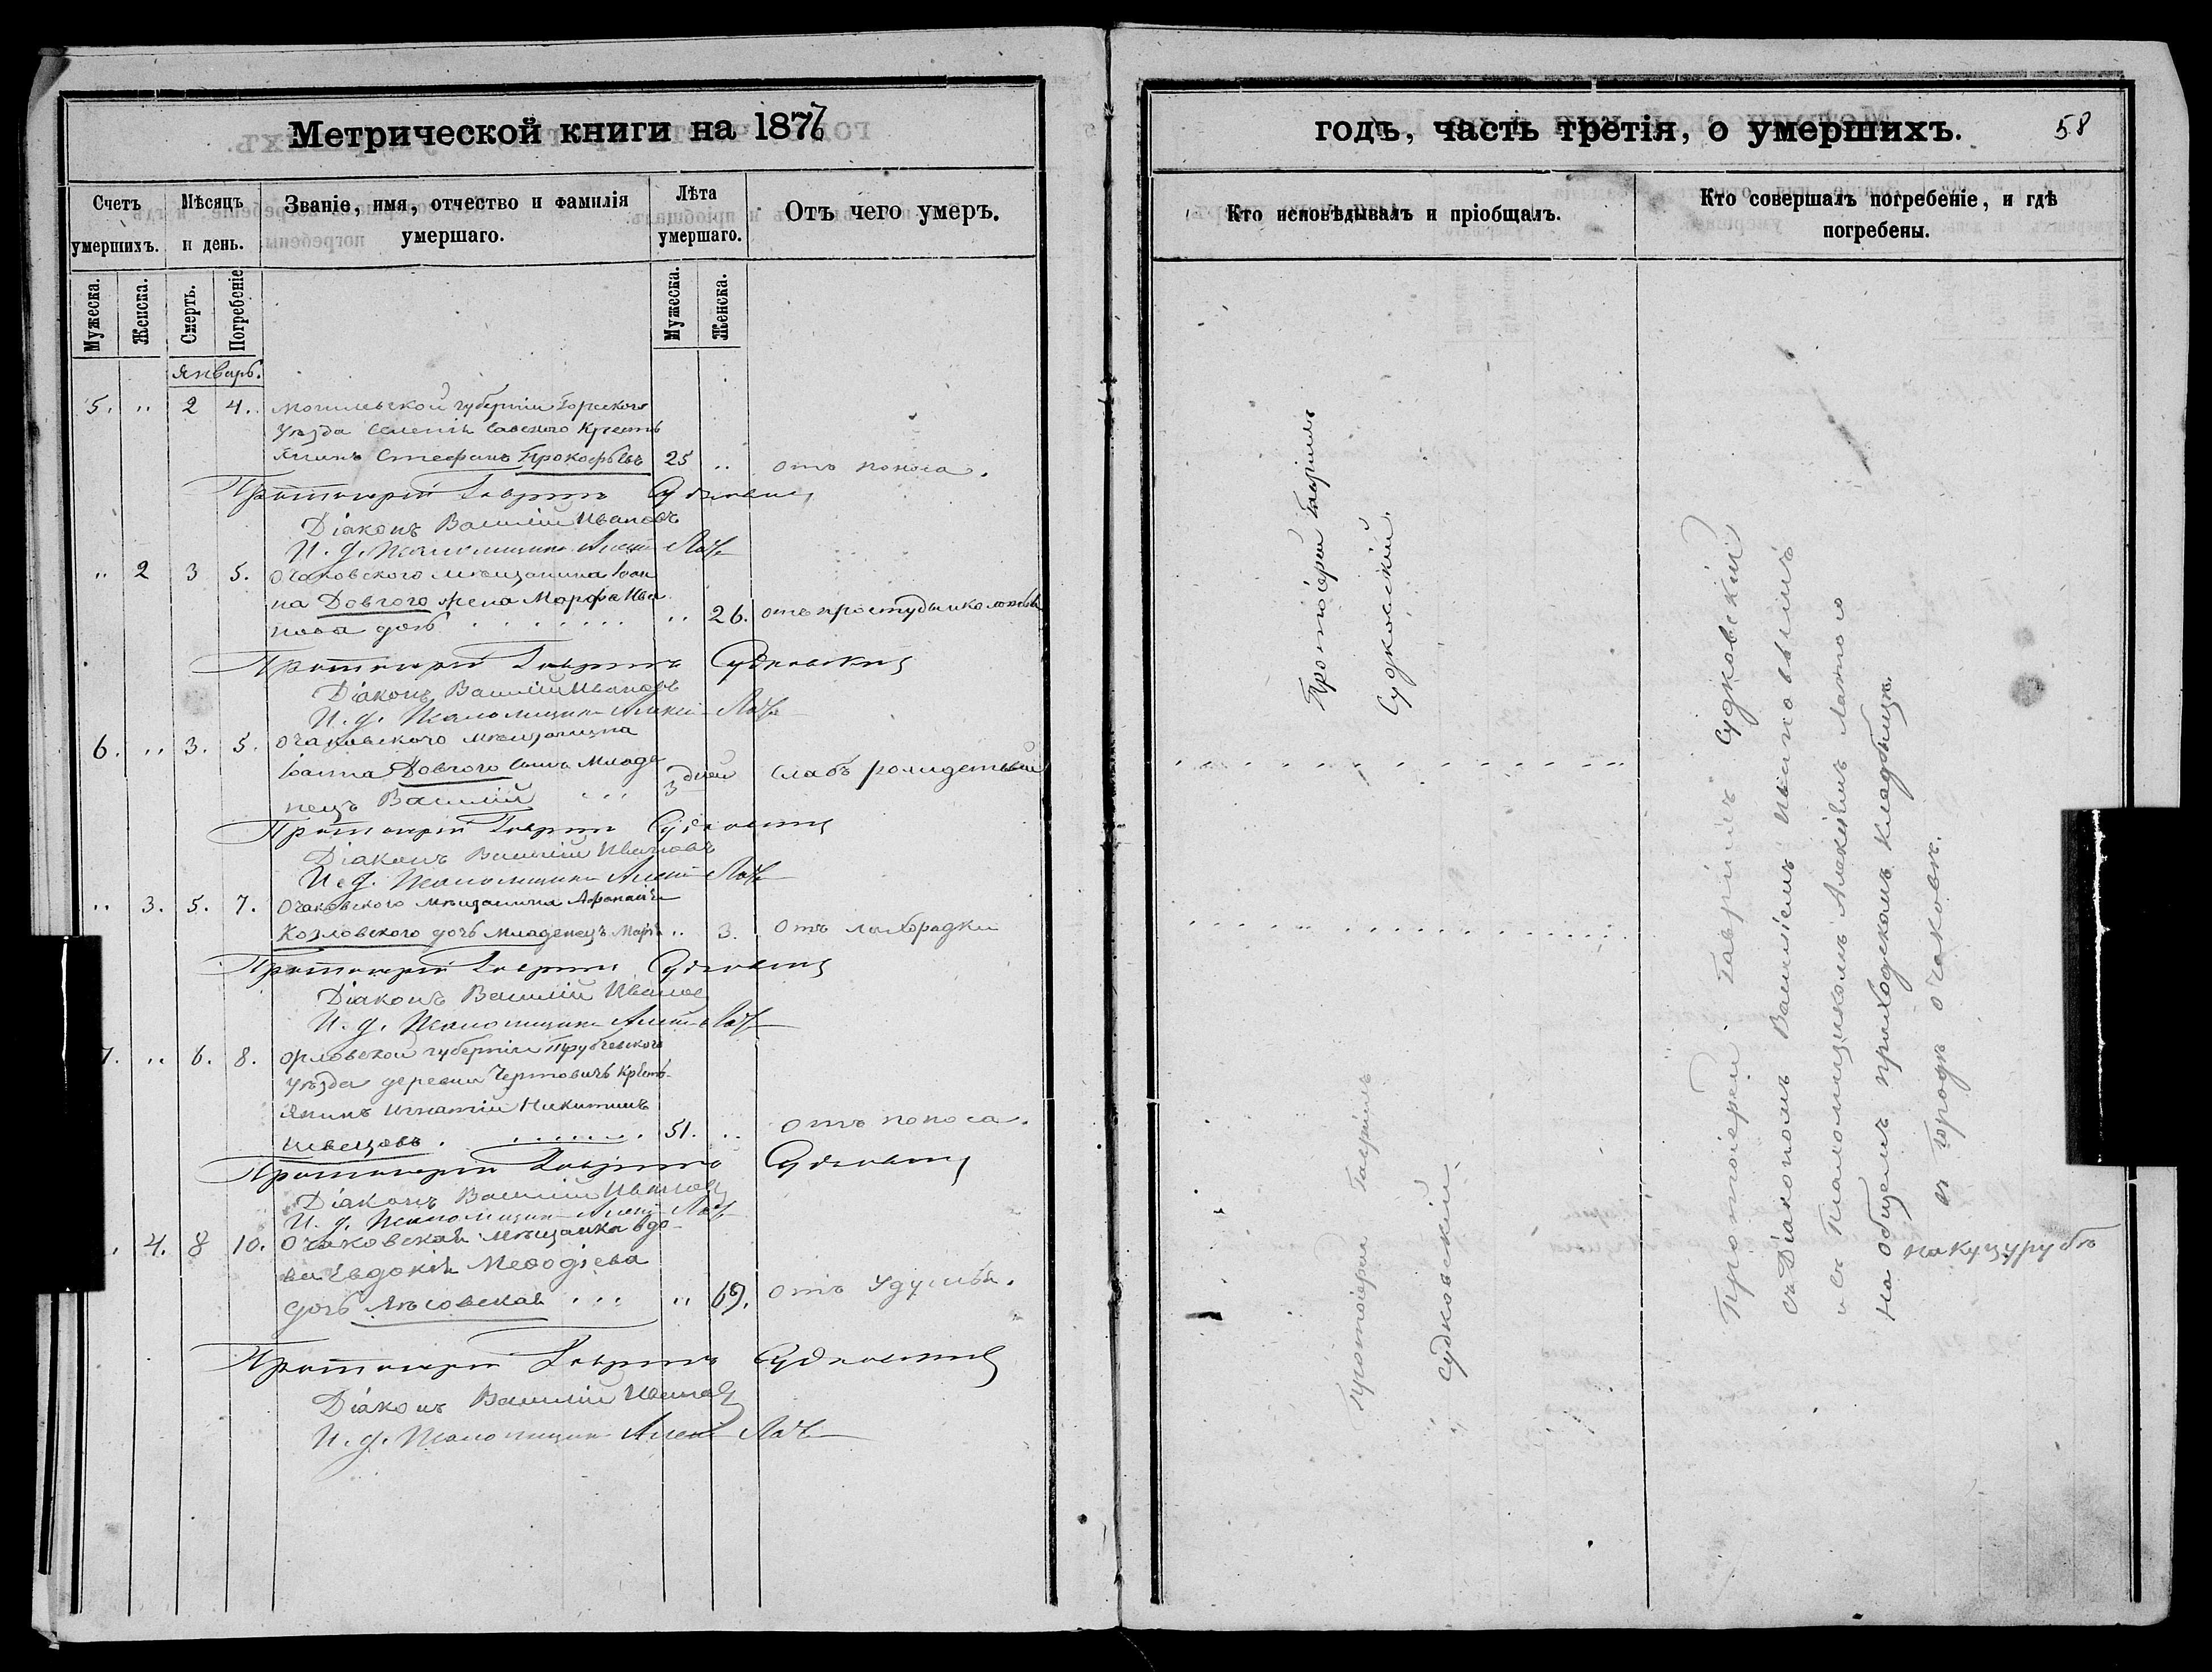 Метрической книги на 1877
Счетъ умершихъ.
Мѣсяцъ и день.
Званіе, имя, отчество и фамилія умершаго.
Лѣта умершаго.
Отъ чего умеръ.
Мужеска.
Женска.
Смерть.
Погребеніе
Мужеска.
Женска.
Январь.
5. „ 2 4. Могилевской губерніи Горского
Уѣзда Селенія Савского Кресть
янинъ Стефанъ Прокофьевъ 25 „ отъ поноса.
Протоіерей Гавріилъ Судковскій
Діаконъ Василій Ивановъ
И. д. Псаломщика Алексѣй
„ 2 3 5. Очаковского мѣщанина Іоан
на Довгого жена Марфа Ива
нова дочь „ 26. отъ простуды
Протоіерей Гавріилъ Судковскій
Діаконъ Василій Ивановъ
И. д. Псаломщика Алексѣй
6. „ 3. 5. Очаковского мѣщанина
Іоанна Довгого сынъ Младе
нецъ Василій 3 дней слабъ
Протоіерей Гавріилъ Судковскій
Діаконъ Василій Ивановъ
И. д. Псаломщика Алексѣй
„ 3. 5. 7. Очаковского мѣщанина Афанасія
Козловского дочь младенецъ Марія „ 3. отъ лихорадки
Протоіерей Гавріилъ Судковскій
Діаконъ Василій Ивановъ
И. д. Псаломщика Алексѣй
7. „ 6. 8. Орловской губерніи Трубчевского
Уѣзда деревни Чертовичь Кресть
янинъ Игнатій Никитинъ
Швецовъ. 51. „ отъ поноса.
Протоіерей Гавріилъ Судковскій
Діаконъ Василій Ивановъ
И. д. Псаломщика Алексѣй
„ 4. 8 10. Очаковская мѣщанка вдо
ва Евдокія Меѳодіева
дочь Лѣсовская „ 69. отъ удушья.
Протоіерей Гавріилъ Судковскій
Діаконъ Василій Ивановъ
И. д. Псаломщика Алексѣй
годъ, часть третія, о умершихъ. 58
Кто исповѣдывалъ и пріобщалъ.
Кто совершалъ погребеніе, и гдѣ погребены.
Протоіерей Гавріилъ
Судковскій.
Протоіерей Гавріилъ
Судковскій.
Протоіерей Гавріилъ Судковскій
съ Діакономъ Василіемъ Ивановымъ
и съ Псаломщикомъ Алексѣемъ
На общемъ приходскомъ кладбищѣ.
въ городѣ Очаковѣ.
на Куцурубѣ